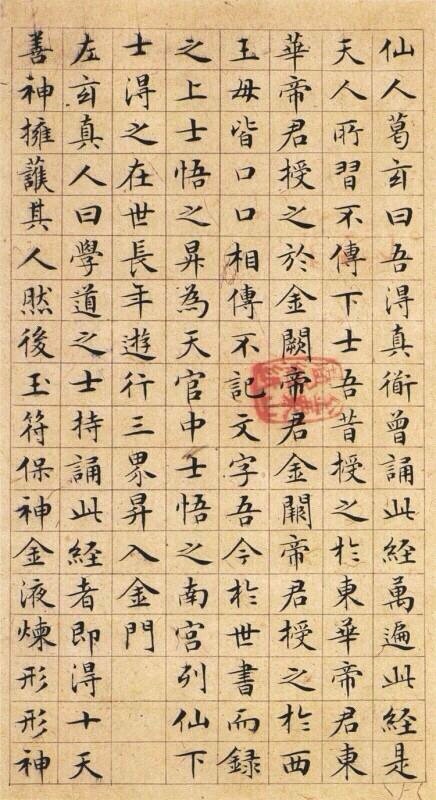 仙人葛玄曰吾得真衟曽誦此經萬遍此經是
天人所習不傳下士吾昔授之扵東華帝君東
華帝君授之於金闕帝君金闕帝君授之扵西
王母皆口口相傳不記文字吾今扵世書而録
之上士悟之昇為天官中士悟之南宮列仙下
士得之在世長年遊行三界昇入金門
左玄真人曰學道之士持誦此経者即得十天
善神擁護其人然後玉符保神金液煉形形神